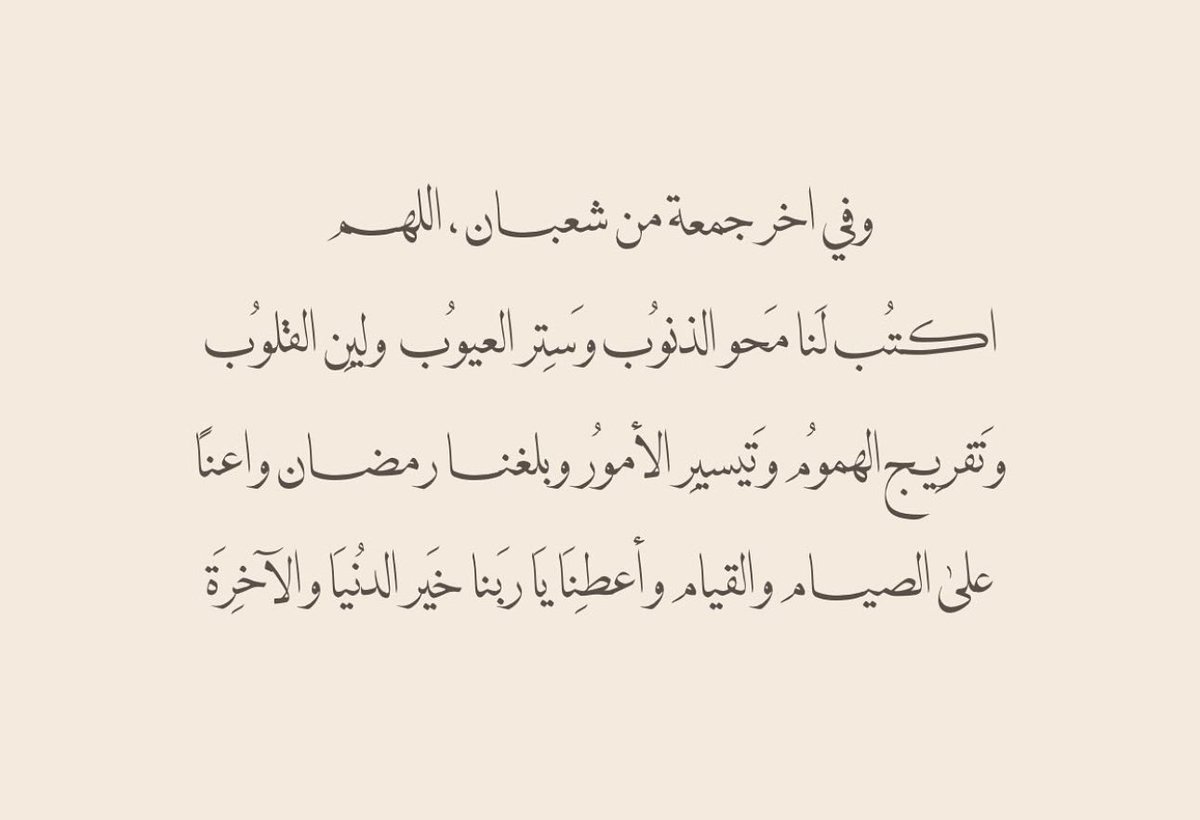 وفي اخر جمعة من شعبـان ، اللهـم
اكتُب لَنا مَحو الذنوُب وسَتِر العيوُب ولينِ القلوُب
وتَفريِج الهمومُ وتَيسيرِ الأمورُ وبلغنـا رمضـان واعناً
علىٰ الصيـام والقيام وأعطِنَا ياَ ربَنا خيَر الدنُياَ والآخرِةَ